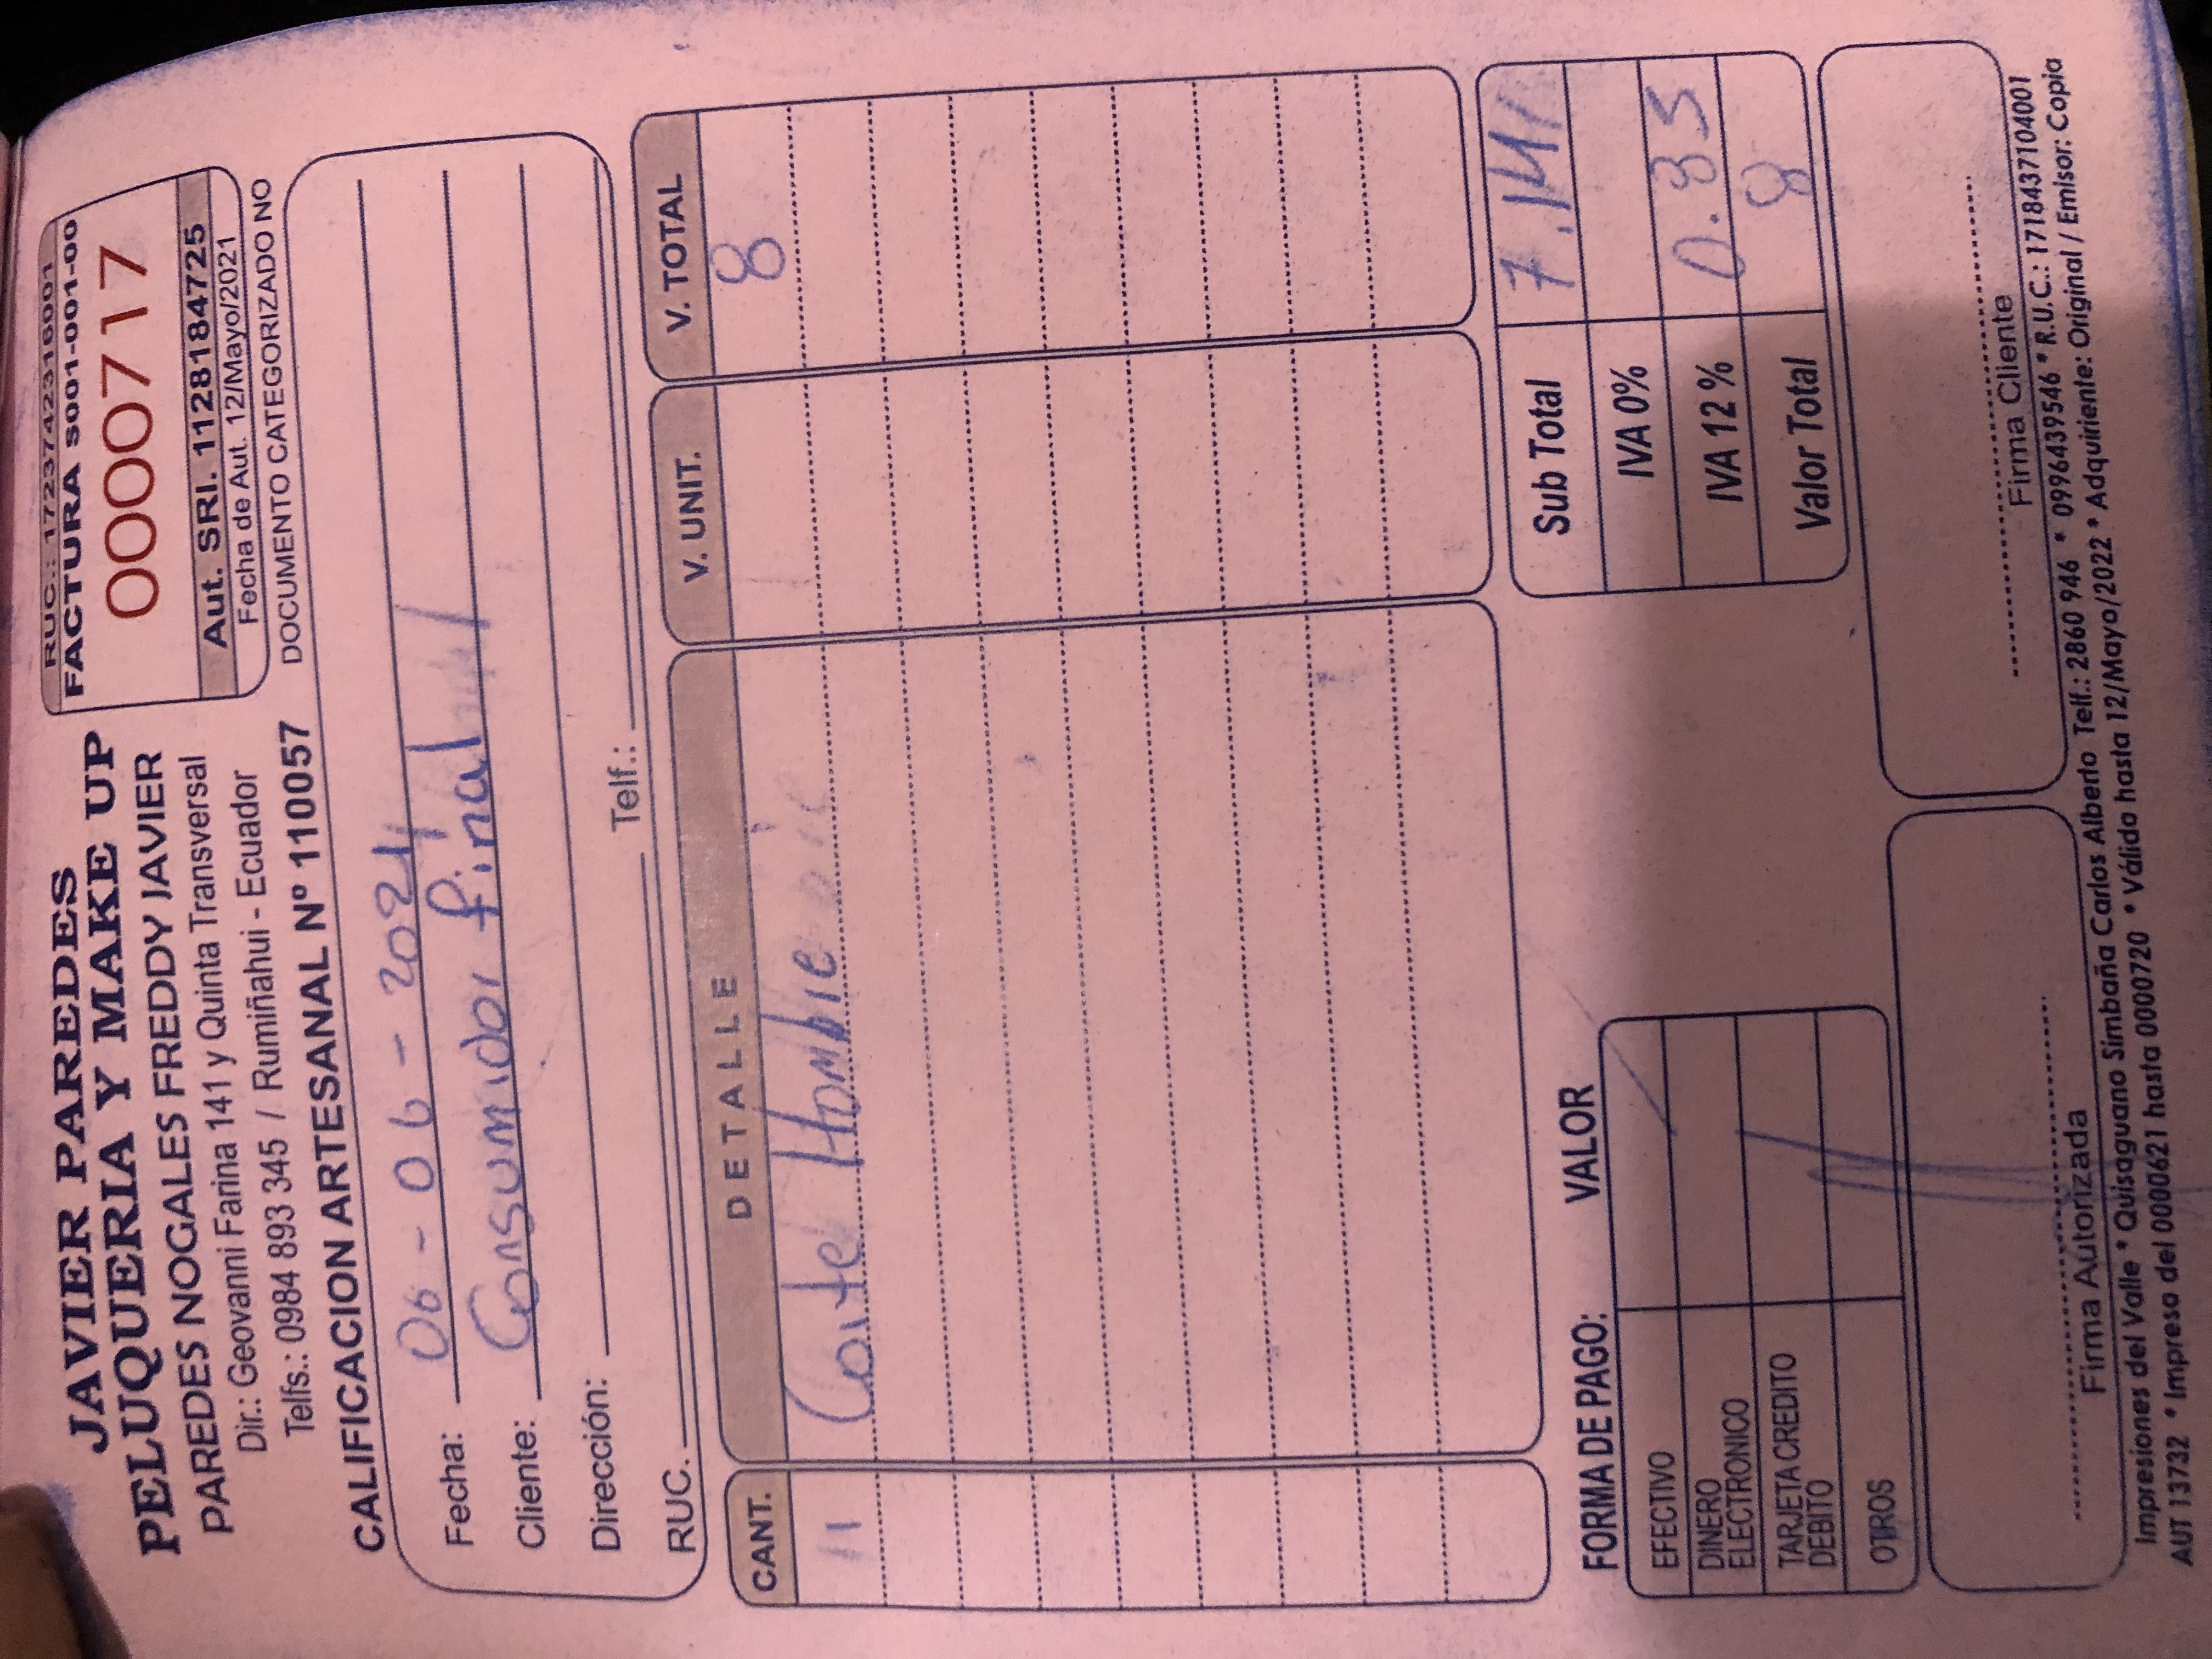 JAVIER PAREDES
PELUQUERIA Y MAKE UP
PAREDES NOGALES FREDDY JAVIER
Dir.: Geovanni Farina 141 y Quinta Transversal
Telfs.: 0984 893 345 / Rumiñahui - Ecuador
CALIFICACION ARTESANAL Nº 110057
RUC.: 1723742316001
FACTURA S001-001-00
0000717
Aut. SRI. 1128184725
Fecha de Aut. 12/Mayo/2021
DOCUMENTO CATEGORIZADO NO
Fecha: 06-06-2021
Cliente: Consumidor final
Dirección:
RUC. Telf.:
CANT. DETALLE V. UNIT. V. TOTAL
1 Corte Hombre 8
Sub Total 7.14
IVA 0%
IVA 12 % 0.85
Valor Total 8
FORMA DE PAGO: VALOR
EFECTIVO
DINERO
ELECTRONICO
TARJETA CREDITO
DEBITO
OTROS
Firma Autorizada
Firma Cliente
Impresiones del Valle * Quisaguano Simbaña Carlos Alberto Telf.: 2860 946 * 0996439546 * R.U.C.: 1718437104001
AUT 13732 * Impreso del 0000621 hasta 0000720 * Válido hasta 12/Mayo/2022 * Adquiriente: Original / Emisor: Copia